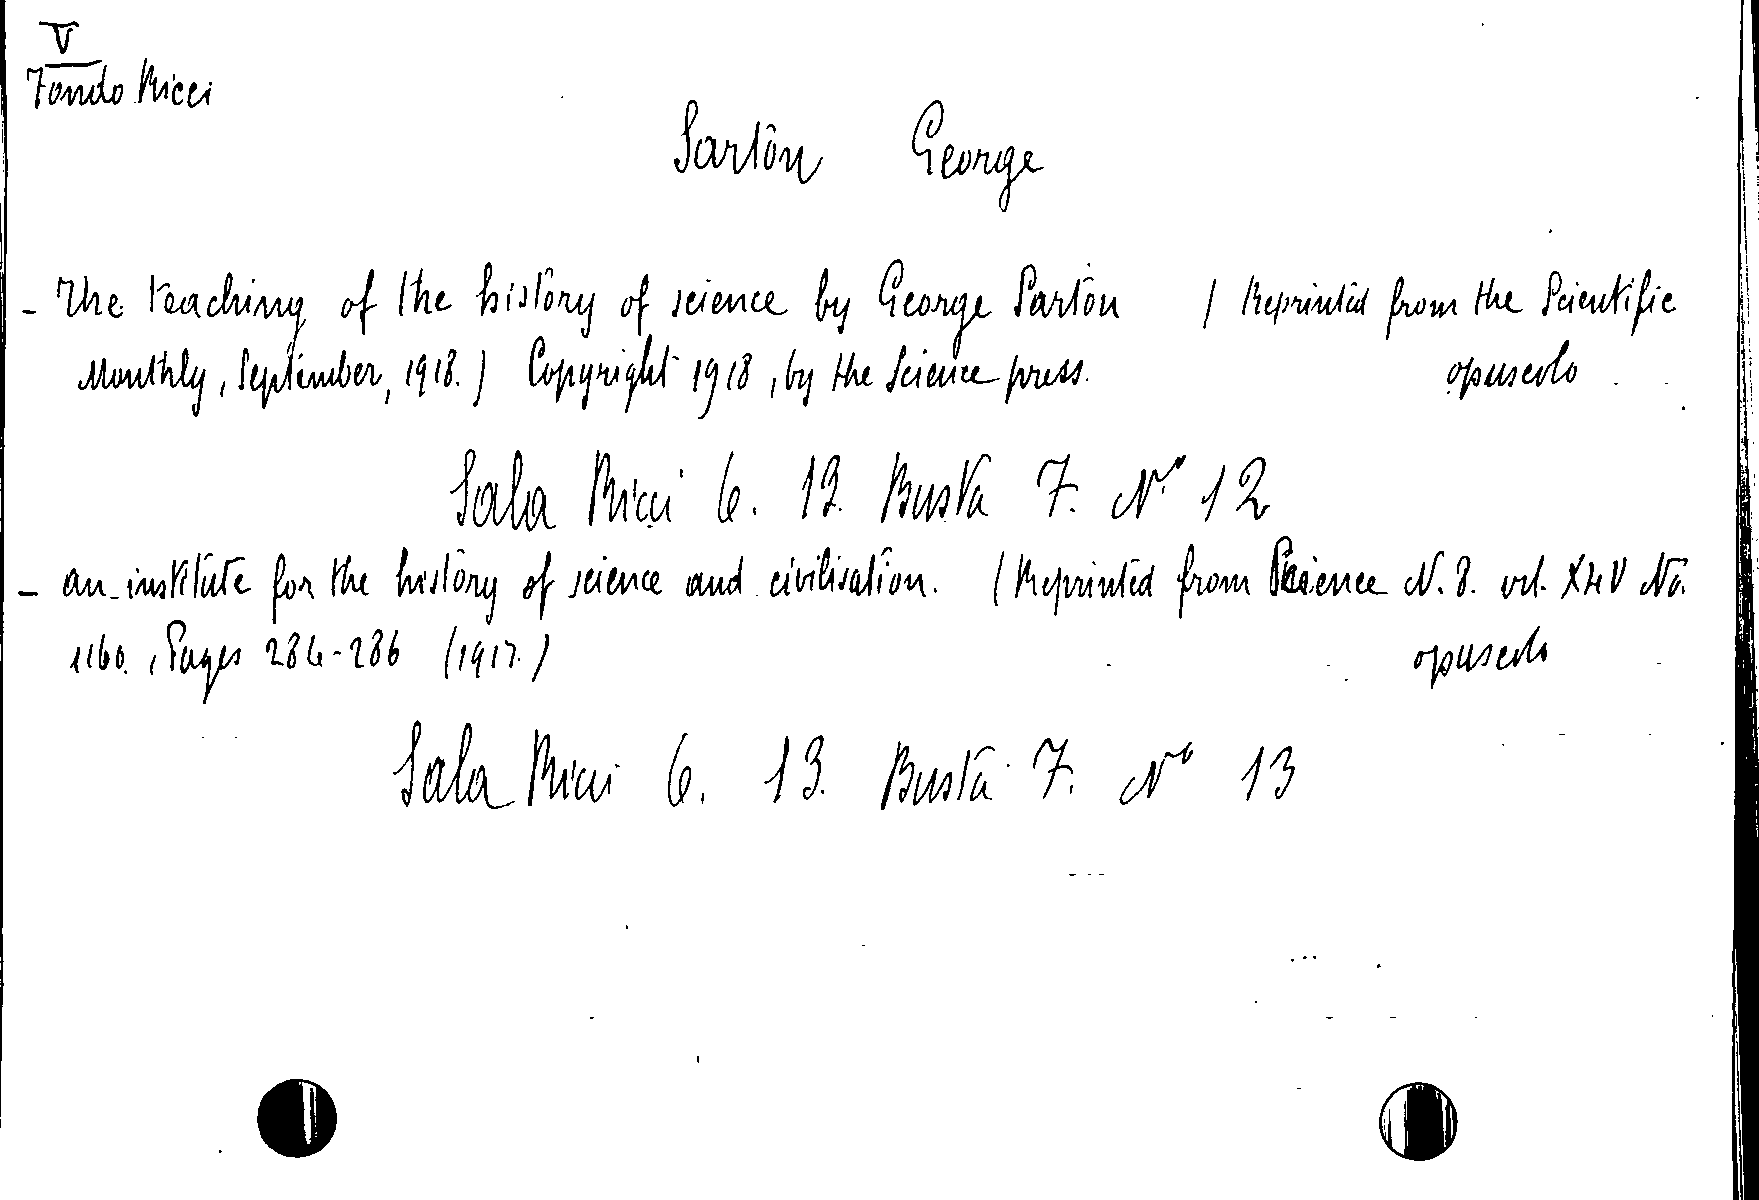 V
Fondo Ricci
Sarton George
- The teaching of the history of science by George Sarton ( Reprinted from the Scientific
Monthly, September, 1918.) Copyright 1918, by the Science press. opuscolo
Sala Ricci 6. 13. Busta 7. N° 12
- an institute for the history of science and civilisation. (Reprinted from Science N.S. vol. XLV No.
1160., Pages 284-286 (1917.) opuscolo
Sala Ricci 6. 13. Busta 7. N° 13